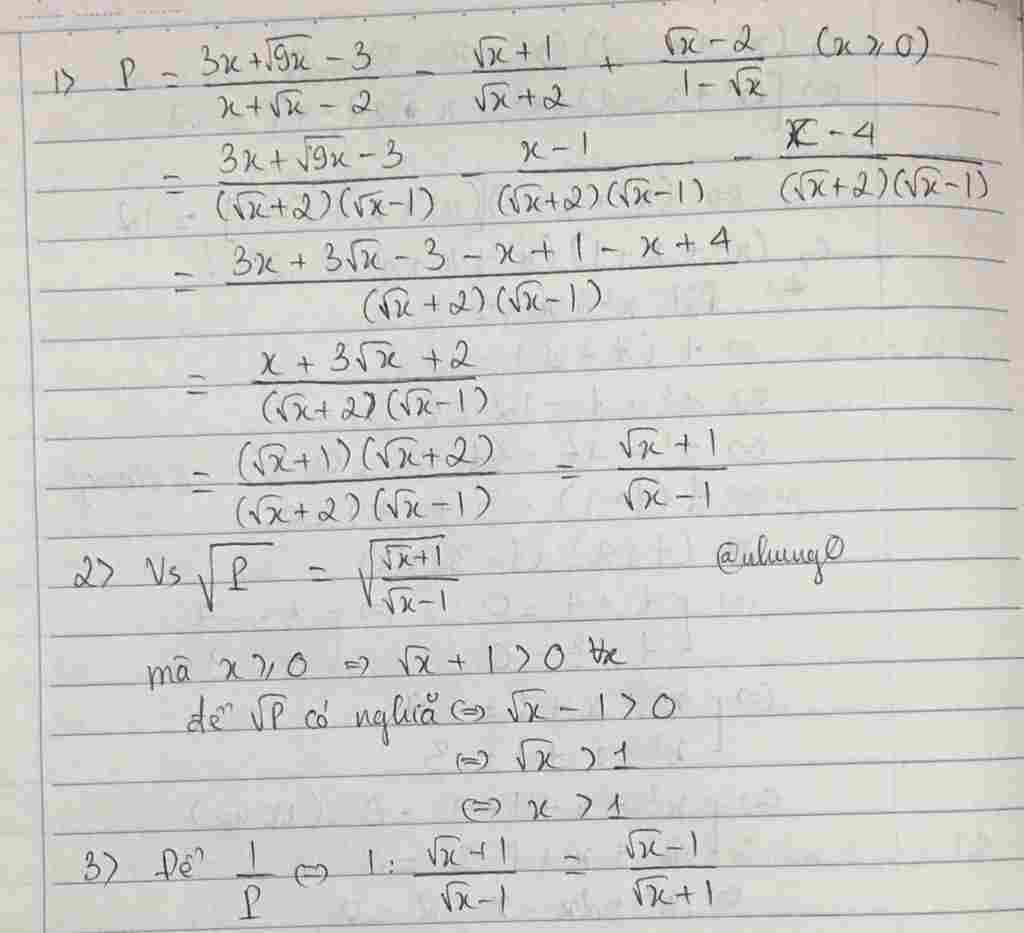 1) P = (3x + √9x − 3)/(x + √x − 2) − (√x + 1)/(√x + 2) + (√x − 2)/(1 − √x) (x ≥ 0)
= (3x + √9x − 3)/((√x + 2)(√x − 1)) − (x − 1)/((√x + 2)(√x − 1)) − (x − 4)/((√x + 2)(√x − 1))
= (3x + 3√x − 3 − x + 1 − x + 4)/((√x + 2)(√x − 1))
= (x + 3√x + 2)/((√x + 2)(√x − 1))
= ((√x + 1)(√x + 2))/((√x + 2)(√x − 1)) = (√x + 1)/(√x − 1)
2) Vs √P = √((√x + 1)/(√x − 1)) @nhung0
mà x ≥ 0 ⇒ √x + 1 > 0 ∀x
để √P có nghĩa ⇔ √x − 1 > 0
⇔ √x > 1
⇔ x > 1
3) Để 1/P ⇔ 1 : (√x + 1)/(√x − 1) = (√x − 1)/(√x + 1)